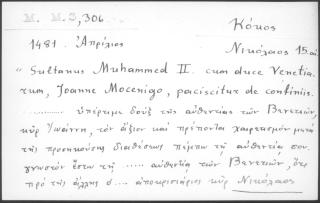 M. M. 3, 306.
Κόκος
1481. Ἀπρίλιος
Νικόλαος 15 αἰ.
"Sultanus Muhammed II. cum duce Venetia-
rum, Joanne Mocenigo, paciscitur de confiniis.
............ ὑπέρτιμε δοὺξ τῆς αὐθεντίας τῶν Βενετιῶν,
κὺρ Ἰωάννη, τὸν ἄξιον καὶ πρέποντα χαιρετισμὸν μετὰ
τῆς προσηκούσης διαθέσεως πέμπω τῇ αὐθεντίᾳ σου.
γνωστὸν ἔστω τῇ ..... αὐθεντίᾳ τῶν Βενετιῶν, ὅτι
πρὸ τῆς ἄλλης ὁ .... ἀποκρισιάριος κὺρ Νικόλαος